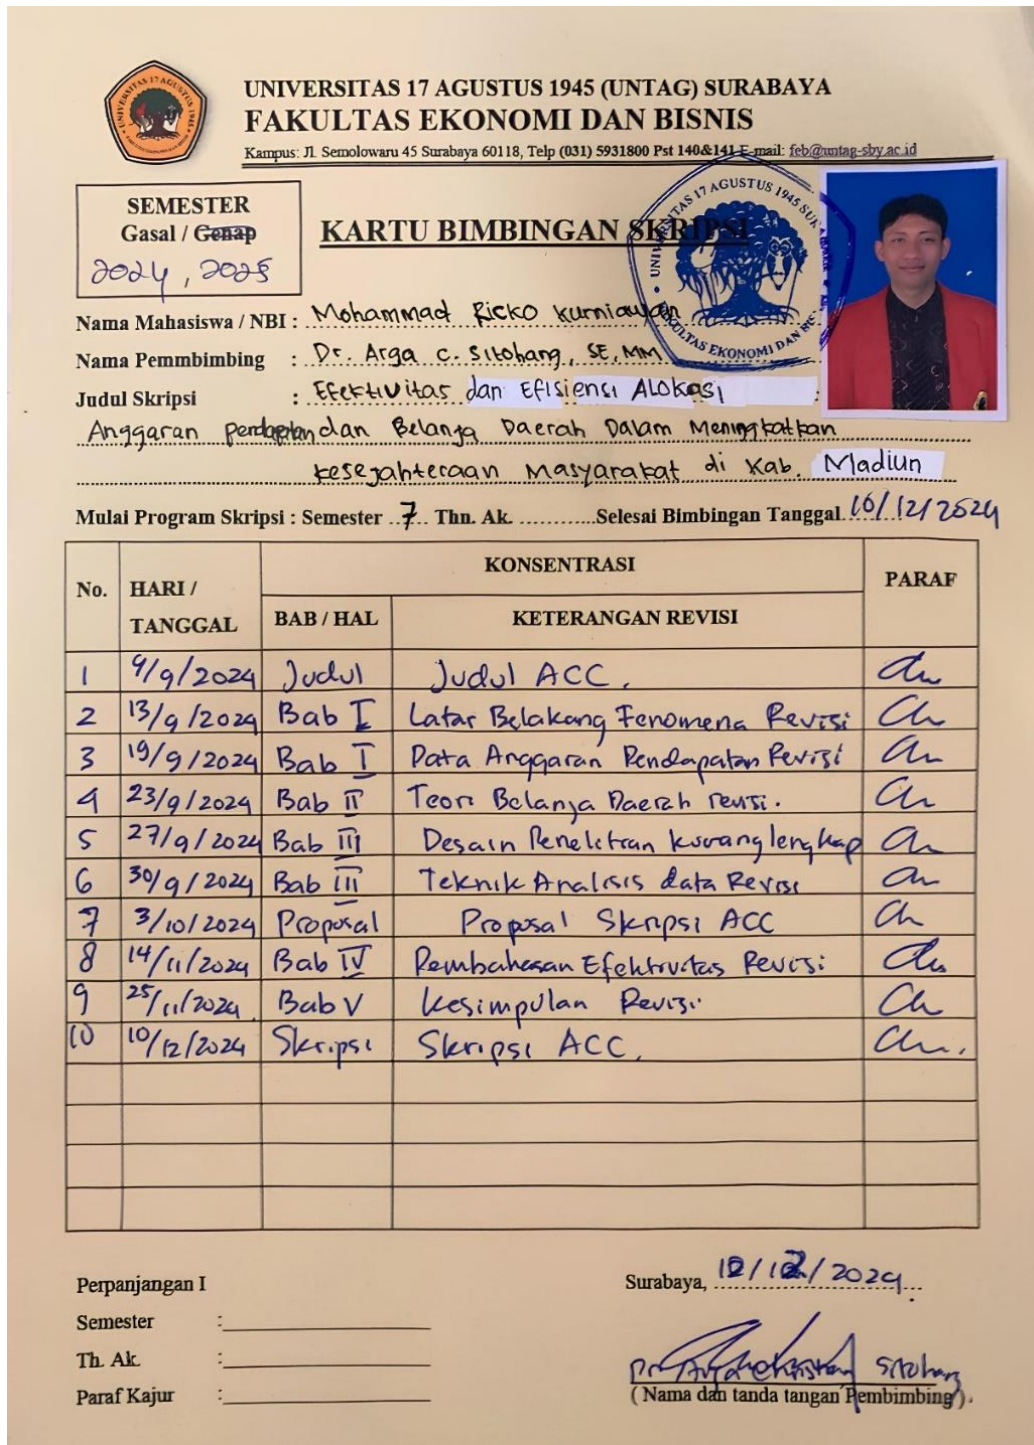 UNIVERSITAS 17 AGUSTUS 1945 (UNTAG) SURABAYA
FAKULTAS EKONOMI DAN BISNIS
Kampus: Jl. Semolowaru 45 Surabaya 60118, Telp (031) 5931800 Pst 140&141 E-mail: feb@untag-sby.ac.id
SEMESTER
Gasal / Genap
2024, 2025
KARTU BIMBINGAN SKRIPSI
Nama Mahasiswa / NBI : Mohammad Ricko Kurniawan
Nama Pemmbimbing : Dr. Arga C. Sitohang, SE, MM
Judul Skripsi : Efektivitas dan Efisiensi Alokasi
Anggaran Pendapatan dan Belanja Daerah Dalam Meningkatkan
Kesejahteraan Masyarakat di Kab. Madiun
Mulai Program Skripsi : Semester 7 Thn. Ak. Selesai Bimbingan Tanggal 10/12/2024
KONSENTRASI
No. HARI / TANGGAL BAB / HAL KETERANGAN REVISI PARAF
1 9/9/2024 Judul Judul ACC.
2 13/9/2024 Bab I Latar Belakang Fenomena Revisi
3 19/9/2024 Bab I Data Anggaran Pendapatan Revisi
4 23/9/2024 Bab II Teori Belanja Daerah revisi.
5 27/9/2024 Bab III Desain Penelitian kurang lengkap
6 30/9/2024 Bab III Teknik Analisis data Revisi
7 3/10/2024 Proposal Proposal Skripsi ACC
8 14/11/2024 Bab IV Pembahasan Efektivitas Revisi
9 25/11/2024 Bab V Kesimpulan Revisi
10 10/12/2024 Skripsi Skripsi ACC.
Perpanjangan I
Semester :
Th. Ak. :
Paraf Kajur :
Surabaya, 2024
Sitohang
( Nama dan tanda tangan Pembimbing )